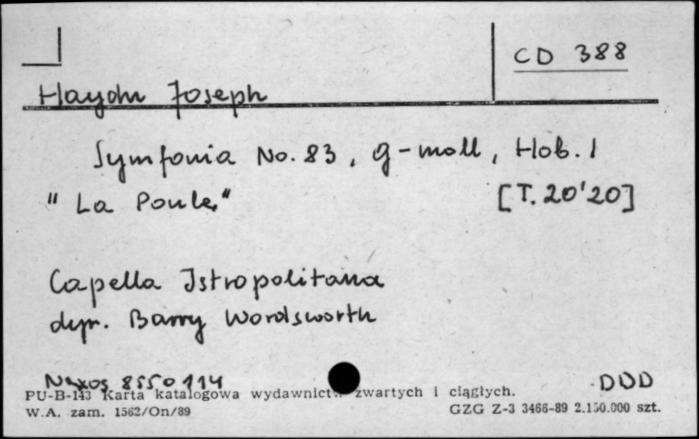 CD 388
Haydn Joseph
Symfonia No. 83, g-moll, Hob. I
"La Poule" [T. 20'20]
Capella Istropolitana
dyr. Barry Wordsworth
Naxos 8550114 DDD
PU-B-143 Karta katalogowa wydawnictw zwartych i ciągłych.
W.A. zam. 1562/On/89 GZG Z-3 3466-89 2.150.000 szt.